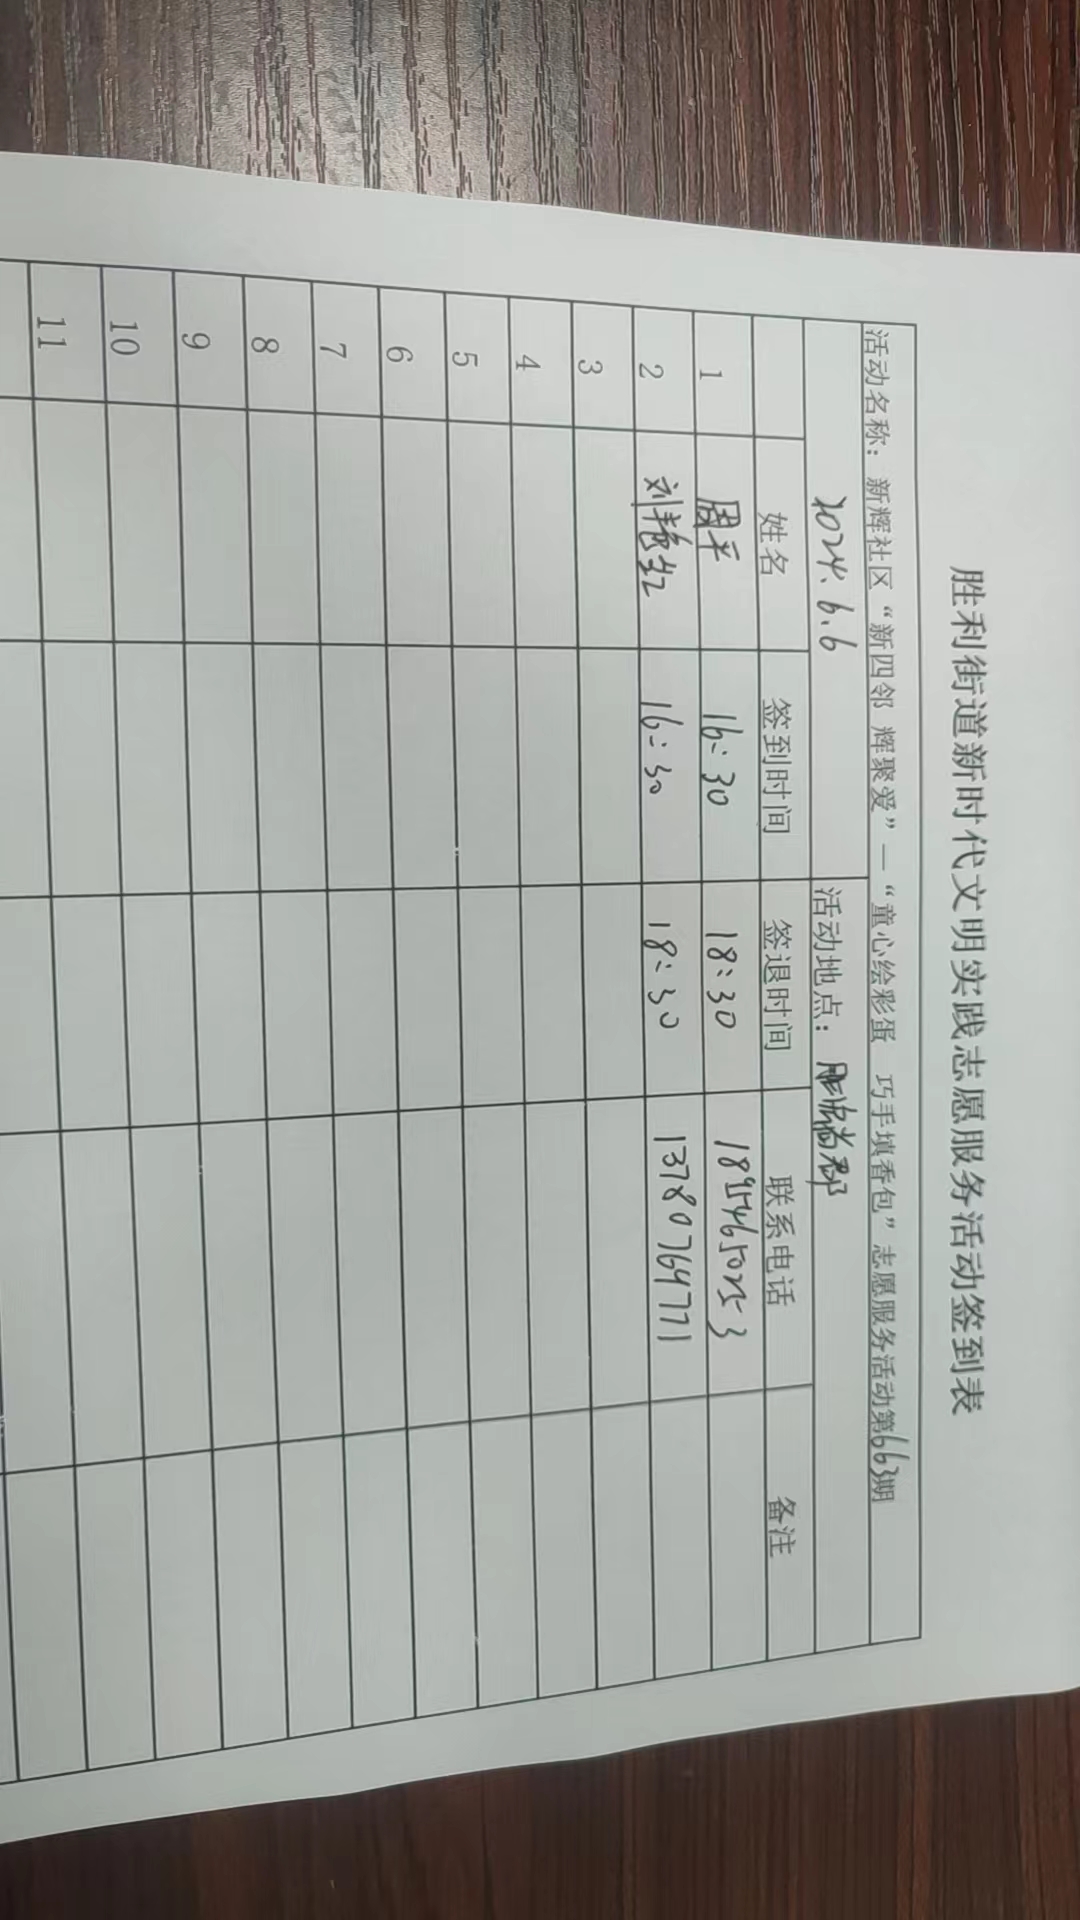 胜利街道新时代文明实践志愿服务活动签到表
活动名称：新辉社区“新四邻 辉聚爱”—“童心绘彩蛋 巧手填香包”志愿服务活动第663期
2024.6.6 活动地点：尚郡
姓名 签到时间 签退时间 联系电话 备注
1 周平 16:30 18:30 18954650253
2 刘艳红 16:30 18:30 13780764771
3
4
5
6
7
8
9
10
11